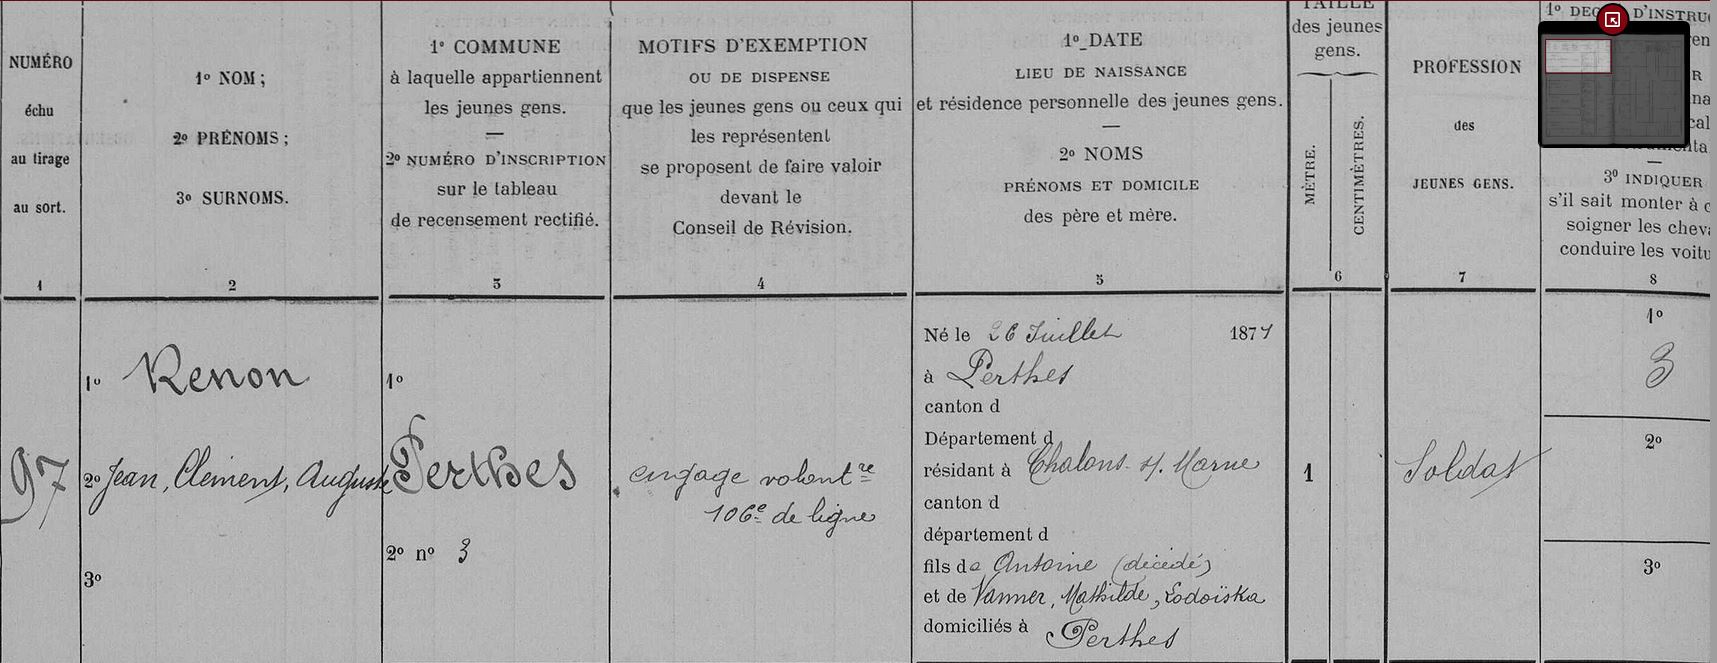 NUMÉRO
échu
au tirage
au sort.
1
1º NOM ;
2º PRÉNOMS ;
3º SURNOMS.
2
1º COMMUNE
à laquelle appartiennent
les jeunes gens.
2º NUMÉRO D'INSCRIPTION
sur le tableau
de recensement rectifié.
3
MOTIFS D'EXEMPTION
OU DE DISPENSE
que les jeunes gens ou ceux qui
les représentent
se proposent de faire valoir
devant le
Conseil de Révision.
4
1º DATE
LIEU DE NAISSANCE
et résidence personnelle des jeunes gens.
2º NOMS
PRÉNOMS ET DOMICILE
des père et mère.
5
TAILLE
des jeunes
gens.
MÈTRE.
CENTIMÈTRES.
6
PROFESSION
des
JEUNES GENS.
7
1º D'INSTRU
3º INDIQUER
s'il sait monter à c
soigner les cheva
conduire les voitu
8
97
1º Renon
2º Jean, Clément, Auguste
3º
1º
Perthes
2º nº 3
engagé volontre
106e de ligne
Né le 26 Juillet 1877
à Perthes
canton d
Département d
résidant à Chalons s/ Marne
canton d
département d
fils de Antoine (décédé)
et de Vanner, Mathilde, Lodoïska
domiciliés à Perthes
1
Soldat
1º
3
2º
3º